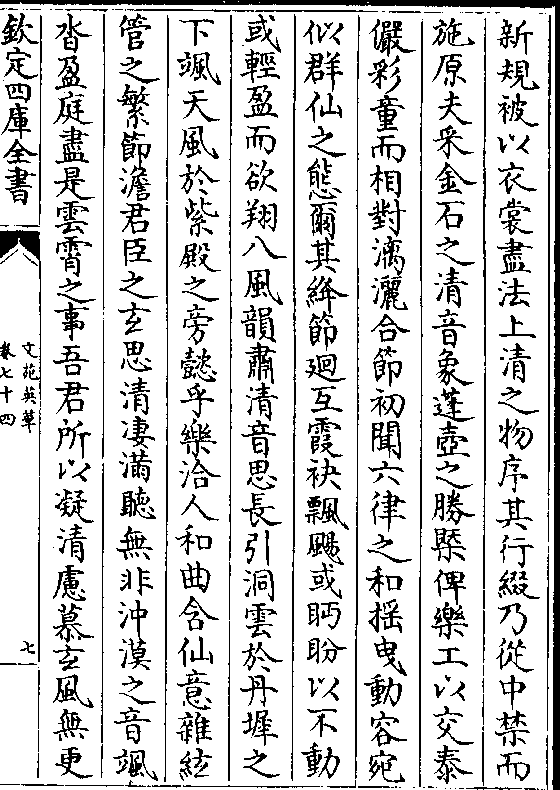 新規被以衣裳盡法上清之物序其行綴乃從中禁而
施原夫采金石之清音象蓬壺之勝槩俾樂工以交泰
儼彩童而相對漓灑合節初聞六律之和揺曳動容宛
似群仙之態爾其絳節廻互霞袂飄颺或眄盼以不動
或輕盈而欲翔八風韻肅清音思長引洞雲於丹墀之
下颯天風於紫殿之旁懿乎樂洽人和曲含仙意雜絃
管之繁節澹君臣之玄思清凄滿聽無非沖漠之音颯
沓盈庭盡是雲霄之事吾君所以凝清慮慕玄風無更
欽定四庫全書
文苑英華
卷七十四
七